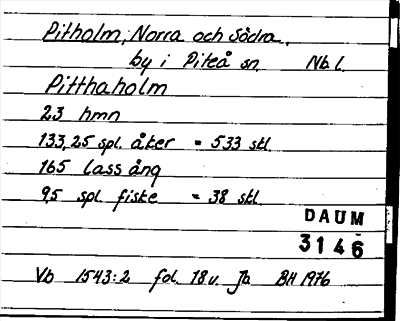 Pitholm, Norra och Södra,
by i Piteå sn. Nb l.
Pitthaholm
23 hmn
133,25 spl. åker = 533 skl.
165 lass äng
9,5 spl. fiske = 38 skl.
DAUM
3146
Vb 1543:2 fol. 18 v. Jb BH 1976